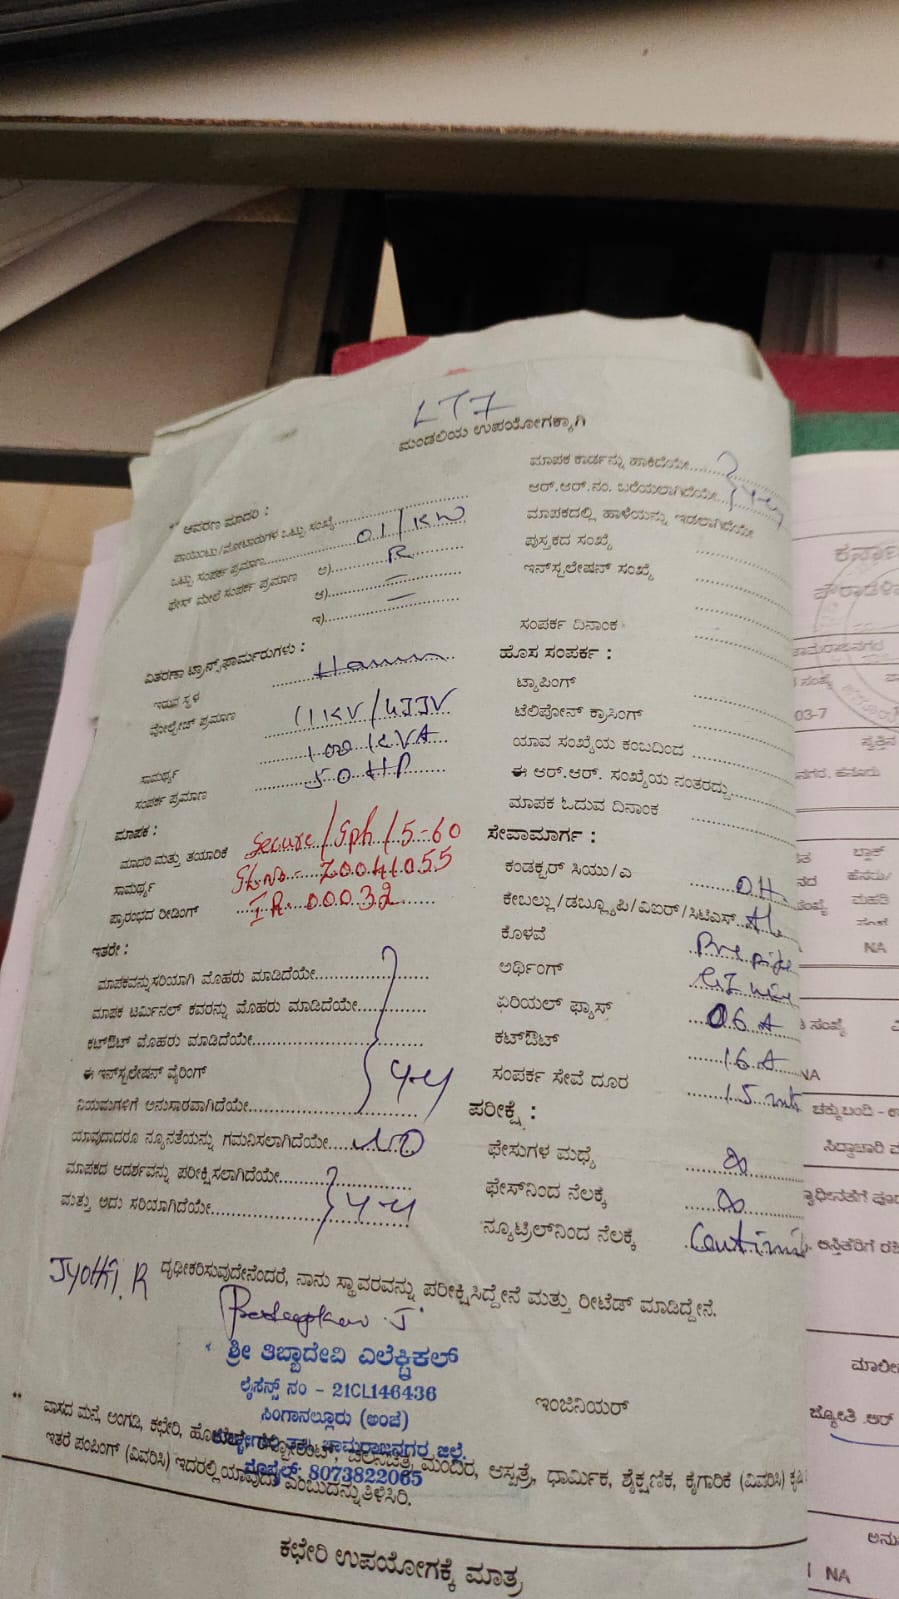 LT7
ಮಂಡಲಿಯ ಉಪಯೋಗಕ್ಕಾಗಿ
** ಆವರಣ ಮಾದರಿ :
ಪಾಯಿಂಟು/ಮೋಟಾರುಗಳ ಒಟ್ಟು ಸಂಖ್ಯೆ
ಒಟ್ಟು ಸಂಪರ್ಕ ಪ್ರಮಾಣ 01/KW
ಫೇಸ್ ಮೇಲೆ ಸಂಪರ್ಕ ಪ್ರಮಾಣ ಅ) R
ಆ) –
ಇ) –
ವಿತರಣಾ ಟ್ರಾನ್ಸ್‌ಫಾರ್ಮರುಗಳು :
ಇರುವ ಸ್ಥಳ
ವೋಲ್ಟೇಜ್ ಪ್ರಮಾಣ 11KV/433V
ಸಾಮರ್ಥ್ಯ 100 KVA
ಸಂಪರ್ಕ ಪ್ರಮಾಣ 50 HP
ಮಾಪಕ :
ಮಾದರಿ ಮತ್ತು ತಯಾರಿಕೆ Secure/Sph/5-60
ಸಾಮರ್ಥ್ಯ SL No - Z0041055
ಪ್ರಾರಂಭದ ರೀಡಿಂಗ್ I.R. 00032
ಇತರೇ :
ಮಾಪಕವನ್ನು ಸರಿಯಾಗಿ ಮೊಹರು ಮಾಡಿದೆಯೇ
ಮಾಪಕ ಟರ್ಮಿನಲ್ ಕವರನ್ನು ಮೊಹರು ಮಾಡಿದೆಯೇ
ಕಟ್‌ಔಟ್ ಮೊಹರು ಮಾಡಿದೆಯೇ
ಈ ಇನ್‌ಸ್ಟಲೇಷನ್ ವೈರಿಂಗ್ y-y
ನಿಯಮಗಳಿಗೆ ಅನುಸಾರವಾಗಿದೆಯೇ
ಯಾವುದಾದರೂ ನ್ಯೂನತೆಯನ್ನು ಗಮನಿಸಲಾಗಿದೆಯೇ NO
ಮಾಪಕದ ಆದರ್ಶವನ್ನು ಪರೀಕ್ಷಿಸಲಾಗಿದೆಯೇ
ಮತ್ತು ಅದು ಸರಿಯಾಗಿದೆಯೇ y-y
ಮಾಪಕ ಕಾರ್ಡನ್ನು ಹಾಕಿದೆಯೇ
ಆರ್.ಆರ್.ನಂ. ಬರೆಯಲಾಗಿದೆಯೇ y-y
ಮಾಪಕದಲ್ಲಿ ಹಾಳೆಯನ್ನು ಇಡಲಾಗಿದೆಯೇ
ಪುಸ್ತಕದ ಸಂಖ್ಯೆ
ಇನ್‌ಸ್ಟಲೇಷನ್ ಸಂಖ್ಯೆ
ಸಂಪರ್ಕ ದಿನಾಂಕ
ಹೊಸ ಸಂಪರ್ಕ :
ಟ್ಯಾಪಿಂಗ್
ಟೆಲಿಪೋನ್ ಕ್ರಾಸಿಂಗ್
ಯಾವ ಸಂಖ್ಯೆಯ ಕಂಬದಿಂದ
ಈ ಆರ್.ಆರ್. ಸಂಖ್ಯೆಯ ನಂತರದ್ದು
ಮಾಪಕ ಓದುವ ದಿನಾಂಕ
ಸೇವಾಮಾರ್ಗ :
ಕಂಡಕ್ಟರ್ ಸಿಯು/ಎ O.H.
ಕೇಬಲ್ಲು/ಡಬ್ಲ್ಯೂಪಿ/ಎಐರ್/ಸಿಟಿಎಸ್ AL
ಕೊಳವೆ
ಅರ್ಥಿಂಗ್ GI
ಏರಿಯಲ್ ಫ್ಯೂಸ್ 06 A
ಕಟ್‌ಔಟ್ 16 A
ಸಂಪರ್ಕ ಸೇವೆ ದೂರ 15 mt
ಪರೀಕ್ಷೆ :
ಫೇಸುಗಳ ಮಧ್ಯೆ ∞
ಫೇಸ್‌ನಿಂದ ನೆಲಕ್ಕೆ ∞
ನ್ಯೂಟ್ರಲ್‌ನಿಂದ ನೆಲಕ್ಕೆ
Jyothi.R ದೃಢೀಕರಿಸುವುದೇನೆಂದರೆ, ನಾನು ಸ್ಥಾವರವನ್ನು ಪರೀಕ್ಷಿಸಿದ್ದೇನೆ ಮತ್ತು ರೀಟೆಡ್ ಮಾಡಿದ್ದೇನೆ.
ಶ್ರೀ ತಿಬ್ಬಾದೇವಿ ಎಲೆಕ್ಟ್ರಿಕಲ್
ಲೈಸೆನ್ಸ್ ನಂ - 21CL146436
ಸಿಂಗಾನಲ್ಲೂರು (ಅಂಚೆ)
ಚಾಮರಾಜನಗರ ಜಿಲ್ಲೆ
ಮೊಬೈಲ್: 8073822065
ಇಂಜಿನಿಯರ್
** ವಾಸದ ಮನೆ, ಅಂಗಡಿ, ಕಛೇರಿ, ಮಂದಿರ, ಆಸ್ಪತ್ರೆ, ಧಾರ್ಮಿಕ, ಶೈಕ್ಷಣಿಕ, ಕೈಗಾರಿಕೆ (ವಿವರಿಸಿ)
ಇತರೆ ಪಂಪಿಂಗ್ (ವಿವರಿಸಿ) ಇದರಲ್ಲಿ ಯಾವುದು ಎಂಬುದನ್ನು ತಿಳಿಸಿರಿ.
ಕಛೇರಿ ಉಪಯೋಗಕ್ಕೆ ಮಾತ್ರ
03-7
NA
NA
ಚಕ್ಕುಬಂದಿ
ಜ್ಯೋತಿ .ಆರ್
NA